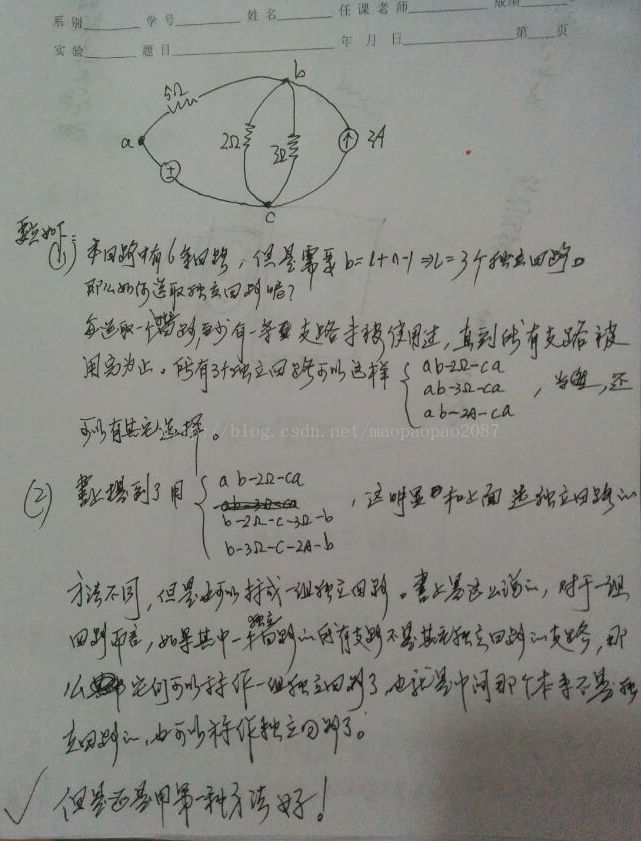 系别 学号 姓名 任课老师 成绩
实验 题目 年 月 日 第 页
5Ω
b
a
2Ω
3Ω
2A
c
要点如下:
(1) 本回路中有6条回路，但是需要 b=l+n-1⇒l=3个独立回路。
那么如何选取独立回路呢？
每选取一个回路,至少有一条支路未被使用过，直到所有支路被
用完为止。所有3个独立回路可以这样 { ab-2Ω-ca
ab-3Ω-ca
ab-2A-ca ，当然，还
可以有其它选择。
http://blog.csdn.net/maopaopao2087
(2) 书上提到了用 { ab-2Ω-ca
ab-3Ω-ca
b-2Ω-c-3Ω-b
b-3Ω-c-2A-b ，这明显和上面选独立回路的
方法不同，但是也可以构成一组独立回路。书上是这么说的，对于一组
回路而言，如果其中一个独立回路的所有支路不是其它独立回路的支路，那
么它们可以称作一组独立回路了，也就是中间那个本来不是独
立回路的，也可以称作独立回路了。
但是还是用第一种方法好！